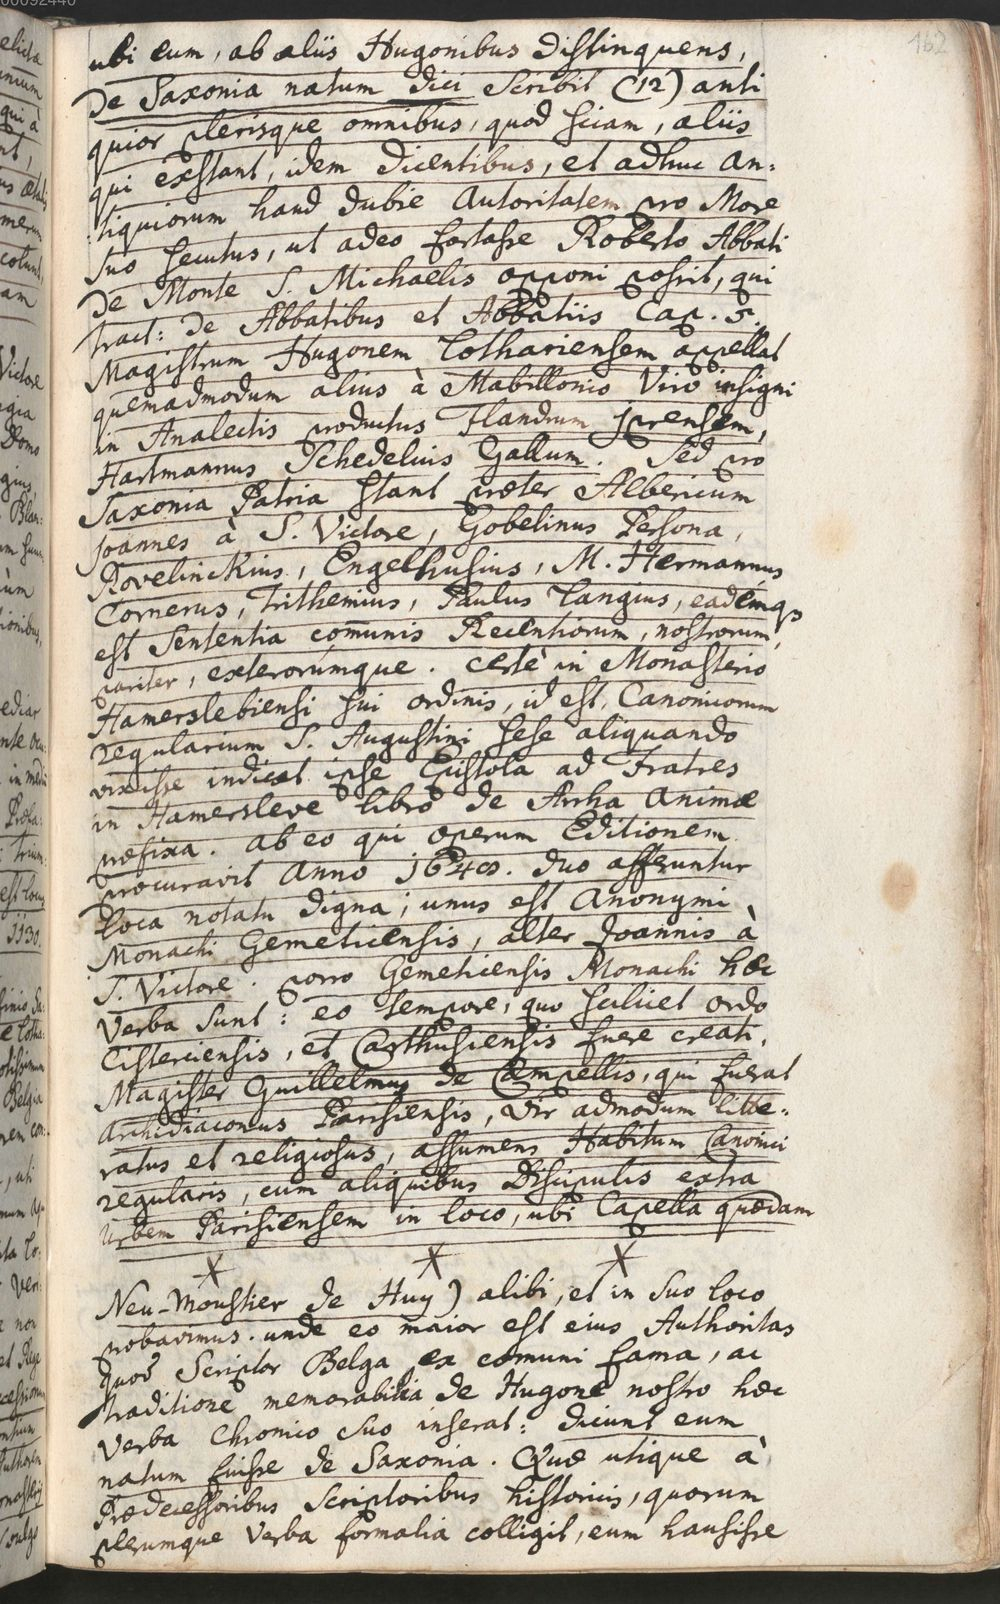 162
ubi eum, ab aliis Hugonibus distinguens,
de Saxonia natum dici scribit (12) anti
quior plerisque omnibus, quod sciam, aliis
qui exstant, idem dicentibus, et adhuc an:
:tiquiorum haud dubie Autoritatem pro More
suo secutus, ut adeo fortasse Roberto Abbati
de Monte S. Michaelis opponi possit, qui
tract: de Abbatibus et Abbatiis Cap. 5.
Magistrum Hugonem Lothariensem appellat
quemadmodum alius à Mabillonio Viro insigni
in Analectis productus Flandrum jprensem,
Hartmannus Schedelius Gallum. Sed pro
Saxonia Patria stant præter Albericum
Joannes à S. Victore, Gobelinus Persona,
Rovelinckius, Engelhusius, M. Hermannus
Cornerus, Trithemius, Paulus Langius, eademqs
est Sententia comunis Recentiorum, nostrorum,
pariter, exterorúmque. certè in Monasterio
Hamerslebiensi sui ordinis, id est, Canonicorum
regularium S. Augustini sese aliquando
vixisse indicat ipse Epistola ad Fratres
in Hamersleve libro de Arrha Animæ
præfixa. ab eo qui operum Editionem
procuravit Anno 1648. duo afferuntur
Loca notatu digna; unus est Anonymi
Monachi Gemeticensis, alter Joannis à
S. Victore. porro Gemeticensis Monachi hæc
Verba sunt: eo tempore, quo scilicet ordo
Cisterciensis, et Carthusiensis fuere creati,
Magister Guillelmus de Campellis, qui fuerat
Archidiaconus Parisiensis, Vir admodum litte:
ratus et religiosus, assumens Habitum Canonici
regularis, cum aliquibus Discipulis extra
Urbem Parisiensem in loco, ubi Capella quædam
Neu-Moustier de Huy) alibi, et in suo loco
probavimus. unde eo maior est eius Authoritas
quod Scriptor Belga ex comuni fama, ac
traditione memorabilia de Hugone nostro hæc
Verba Chronico suo inserat: dicunt eum
natum fuisse de Saxonia. Quæ utique à
Prædecessoribus Scriptoribus historicis, quorum
plerumque Verba formalia colligit, eum hausisse